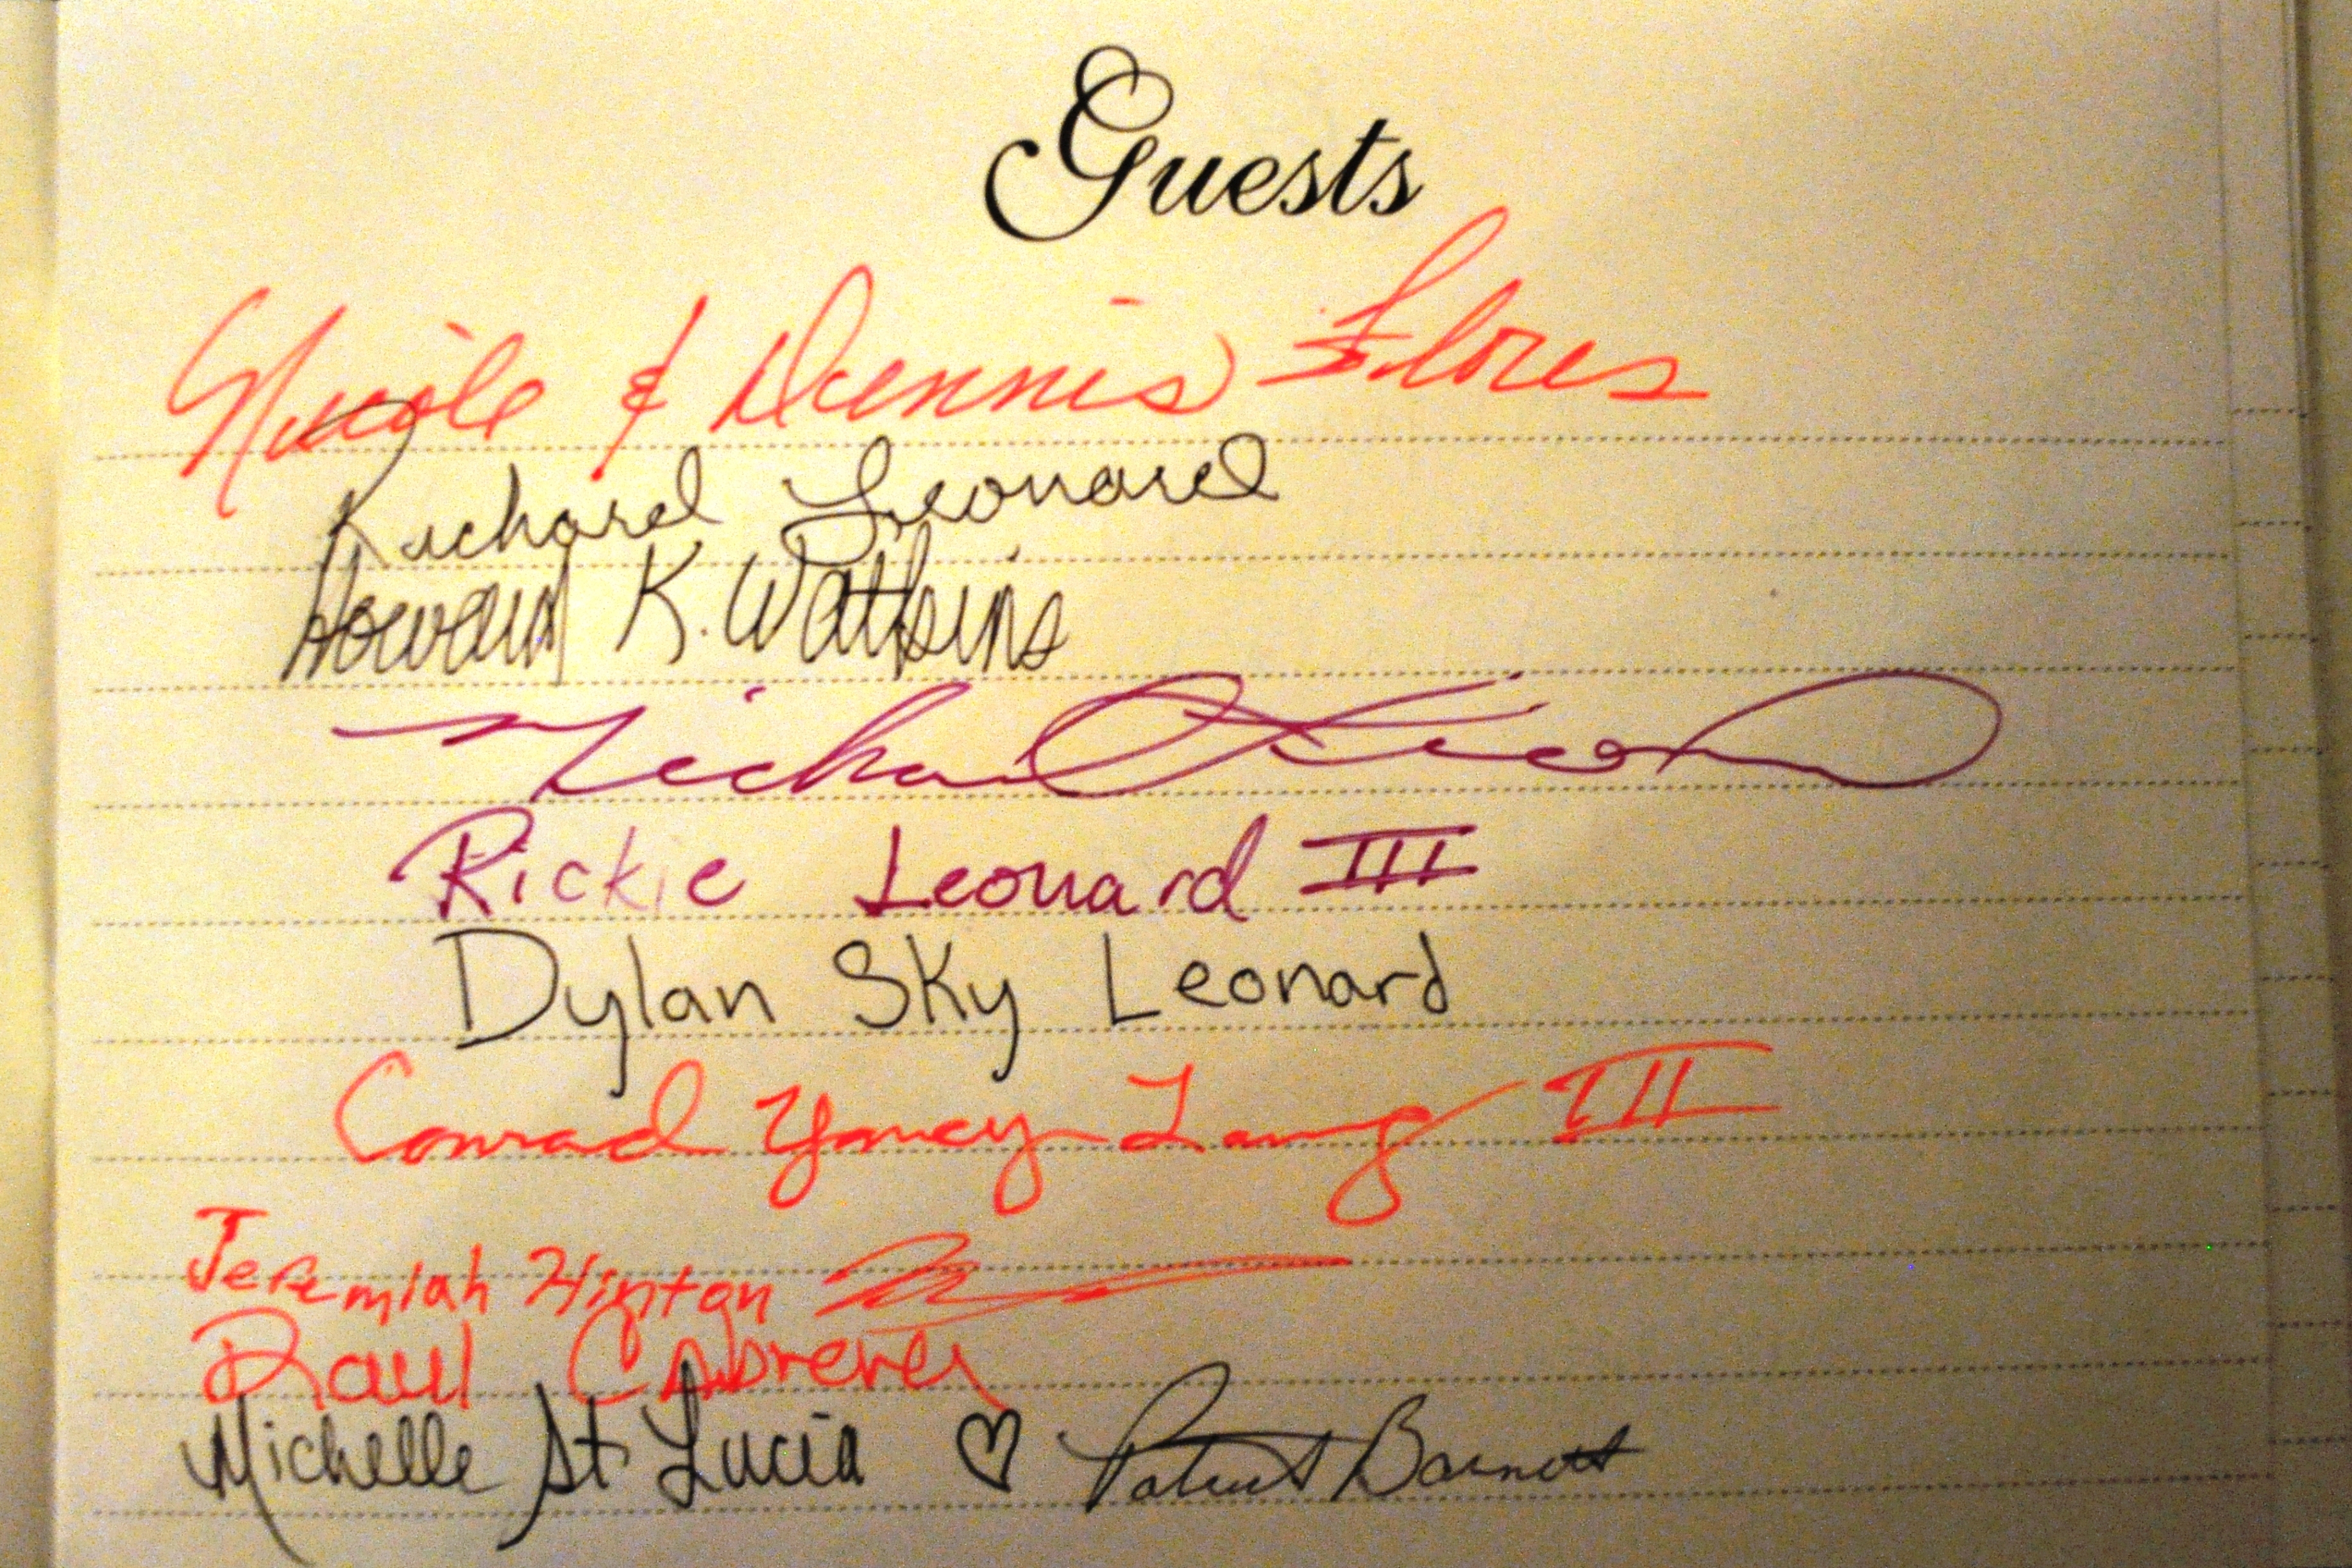 Guests
Nicole & Dennis Flores
Richard Leonard
Howard K. Watkins
Michael
Rickie Leonard III
Dylan Sky Leonard
Conrad Yancy Lang III
Jeremiah Hinton
Raul Cabrera
Michelle St Lucia ♡ Barnett